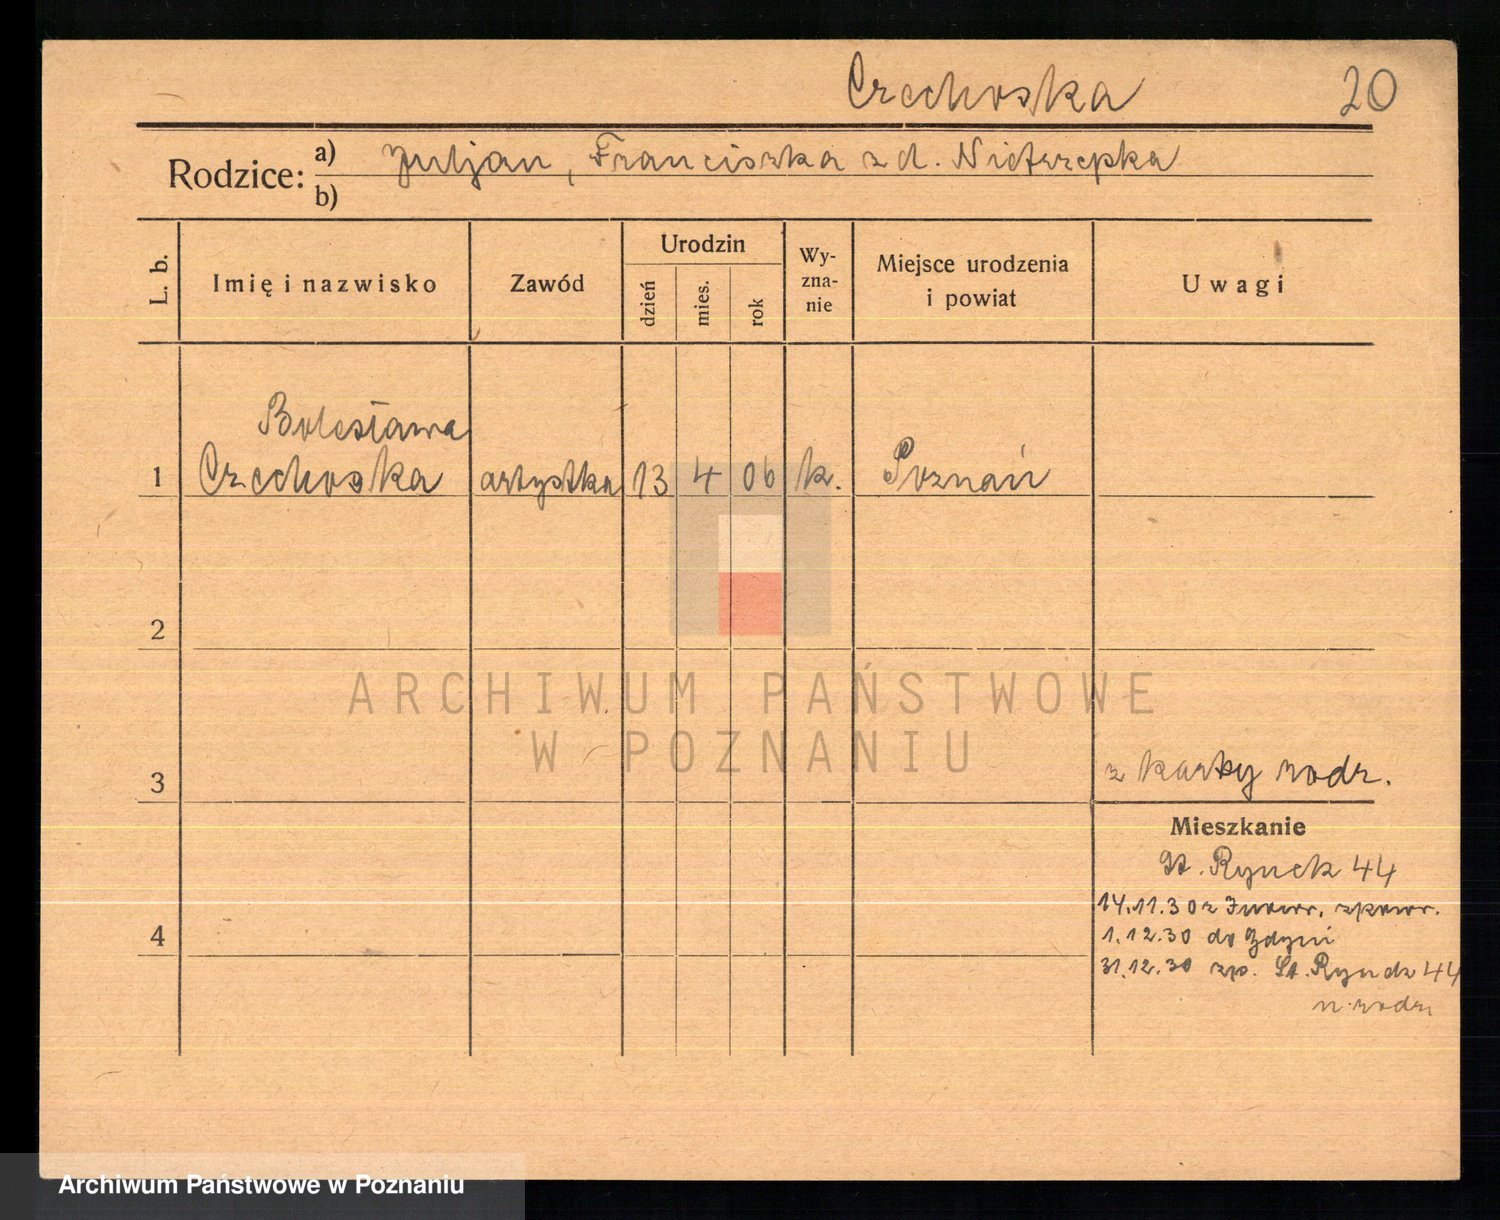 Czechoska 20
Rodzice: a) Juljan, Franciszka z d. Nietrzepka
b)
L. b. Imię i nazwisko Zawód Urodzin dzień mies. rok Wyznanie Miejsce urodzenia i powiat Uwagi
Bolesława
1 Czechoska artystka 13 4 06 k. Poznań
2
ARCHIWUM PAŃSTWOWE
W POZNANIU
3 z karty rodz.
Mieszkanie
St. Rynek 44
14.11.30 z Inowr.
4 1.12.30 do Gdyni
31.12.30 zp. St. Rynek 44
u rodz.
Archiwum Państwowe w Poznaniu